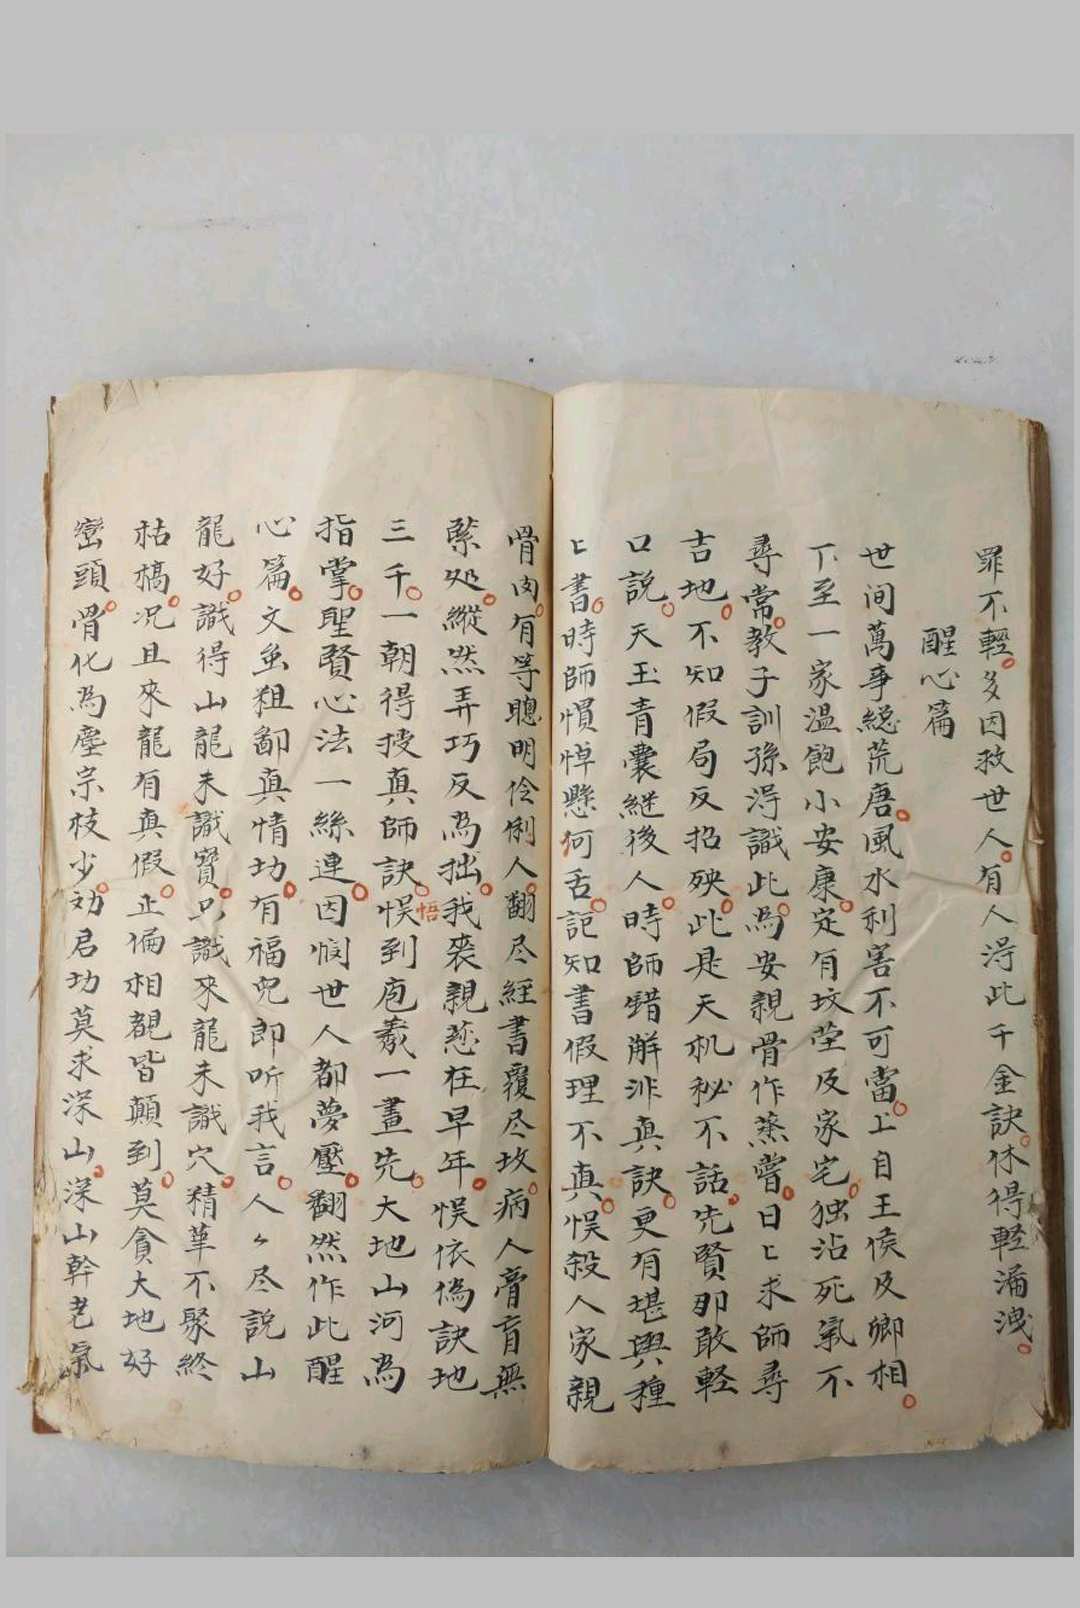 罪不輕多因救世人有人淂此千金訣休得輕漏洩
醒心篇
世间萬事總荒唐風水利害不可當上自王侯及卿相
下至一家溫飽小安康定有坟茔及家宅独沾死氣不
尋常教子訓孫淂識此為安親骨作蒸嘗日〻求師尋
吉地不知假局反招殃此是天机秘不話先賢那敢軽
口說天玉青囊継後人時師錯觧非真訣更有堪輿種
〻書時師慣悼懸何舌詎知書假理不真悮殺人家親
骨肉有等聰明伶俐人翻尽經書覆尽坟病人膏肓無
緊処縱然弄巧反為拙我丧親慈在早年悮依偽訣地
三千一朝得授真師訣悮悟到庖羲一畫先大地山河為
指掌聖賢心法一絲連因憫世人都夢壓翻然作此醒
心篇文虽粗鄙真情切有福児郎听我言人〻尽說山
龍好識得山龍未識寳只識來龍未識穴精華不聚終
枯槁况且來龍有真假正偏相覩皆顛到莫貪大地好
巒頭骨化為塵宗枝少劝君切莫求深山深山幹老氣